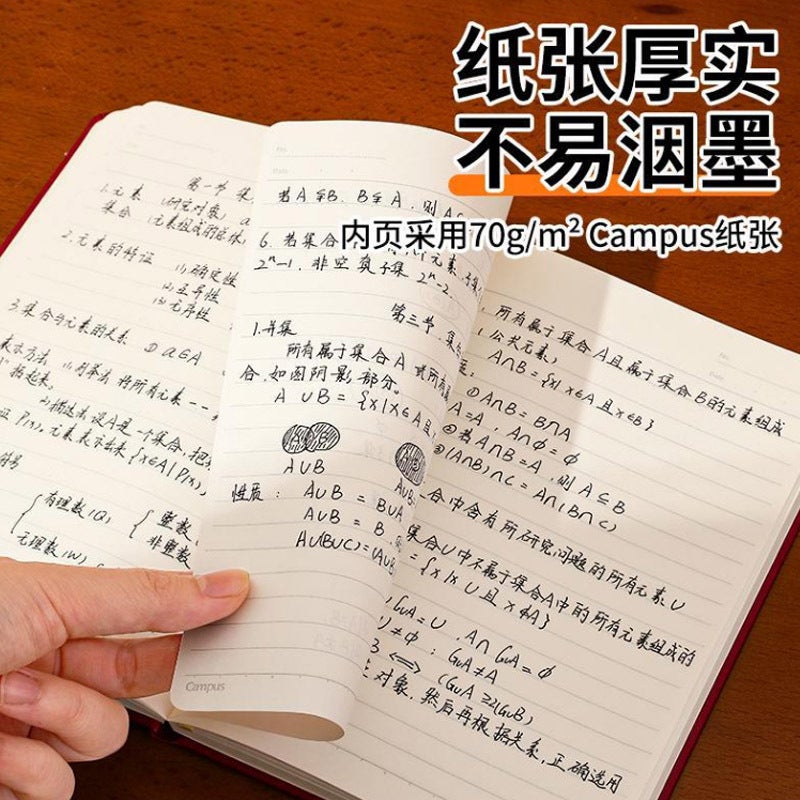 纸张厚实
不易洇墨
内页采用70g/m² Campus纸张
第一节 集
1.元素 (研究对象) a
集合 (元素组成的总体)
2.元素的特征 (1)确定性
(2)互异性
(3)无序性
3.集合与元素的关系 ①a∈A
表示方法 (1)列举法 将所有元素一一
"括起来.
(2)描述法 设A是一个集合,把
P(x),元素表示出来 {x∈A|P(x)}
符号
有理数(Q) { 整数
非整数
无理数
No.
Date
若A⊊B, B⊊A, 则A
6.若集合
2ⁿ-1, 非空真子集 2ⁿ-2.
第三节.集合
1.并集
所有属于集合A或所有属
合,如图阴影部分.
A∪B={x|x∈A且
A∪B
A∪B
性质: A∪B=B∪A
A∪B=B
A∪(B∪C)=(A∪B
Campus
所有属于集合A且属于集合B的元素组成
(公共元素)
A∩B={x|x∈A且x∈B}
①A∩B=B∩A
A=A, A∩ϕ=ϕ
若A∩B=A,则A⊆B
(A∩B)∩C=A∩(B∩C)
合中含有所研究问题的所有元素U
集合U中不属于集合A中的所有元素组成的
={x|x∈U且x∉A}
CuA=U, A∩CuA=ϕ
U≠ϕ: CuA≠A
B⟺(CuA⊇CuB)
对象,然后再根据关系,正确选用